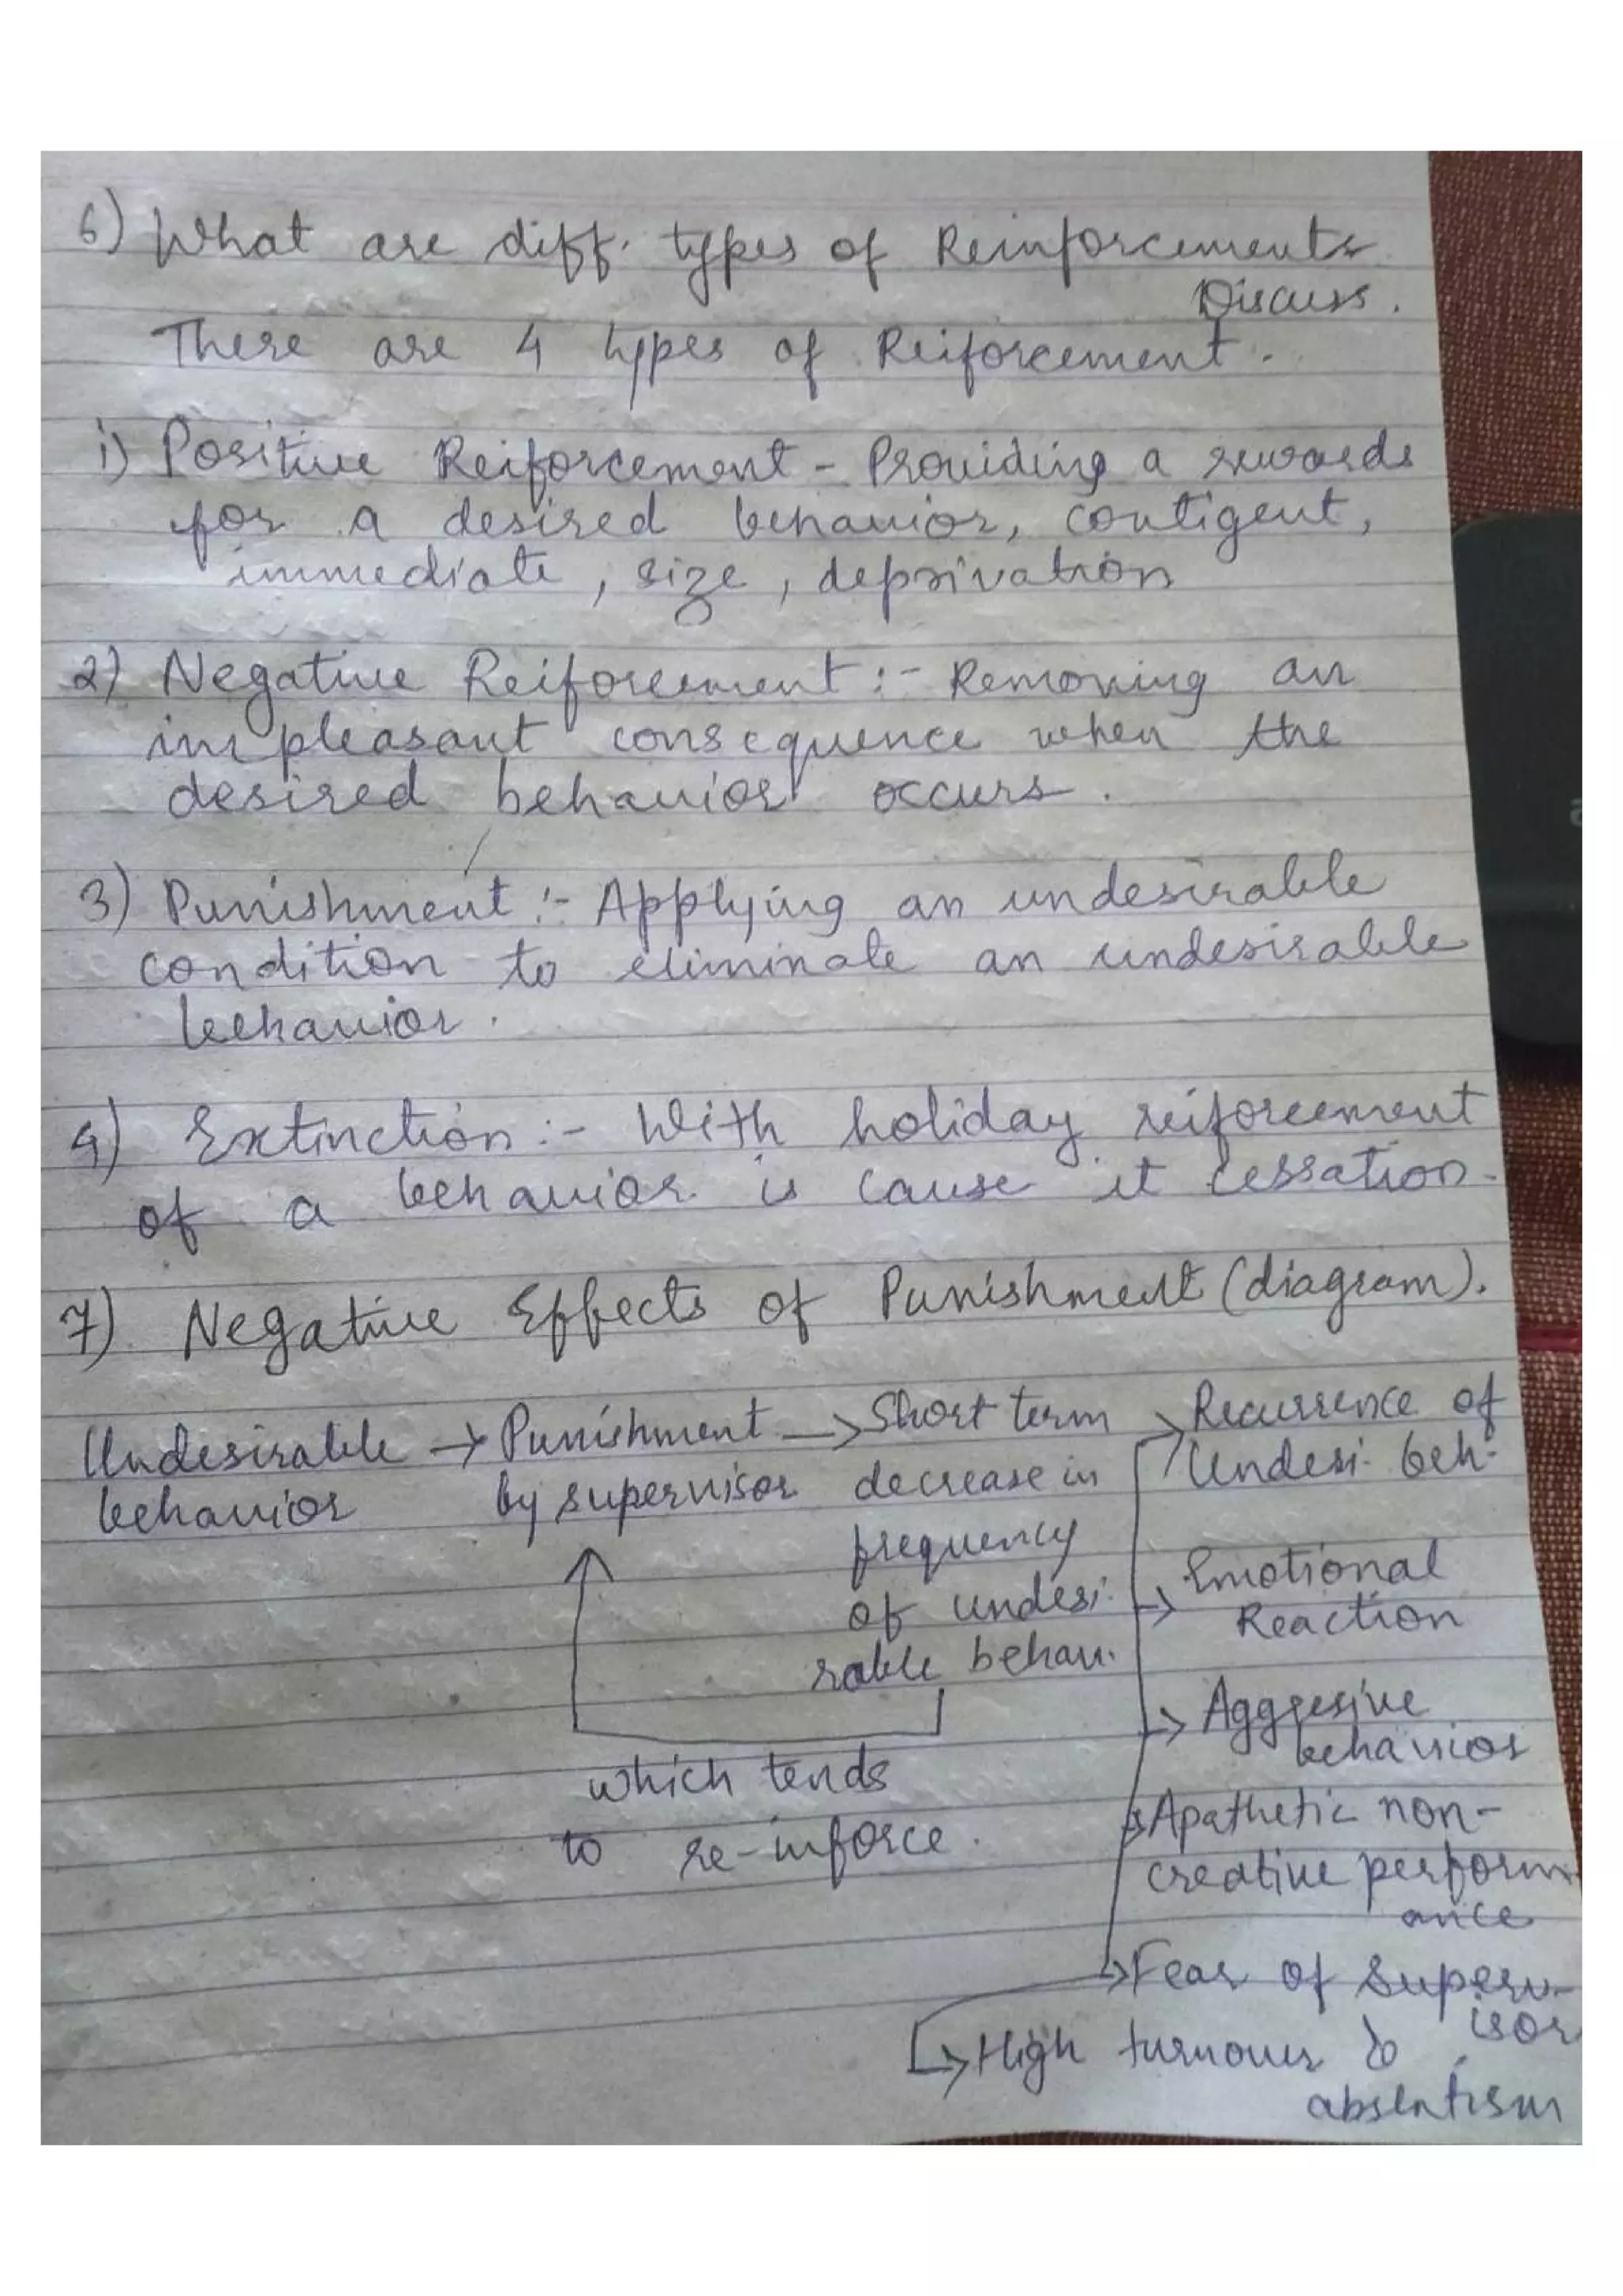 6) What are diff. types of Reinforcements
Discuss.
There are 4 types of Reiforcement.
i) Positive Reiforcement - Providing a rewards
for a desired behavior, contigent,
immediate, size, deprivation
2) Negative Reiforcement :- Removing an
unpleasant consequence when the
desired behavior occurs.
3) Punishment :- Applying an undesirable
condition to eliminate an undesirable
behavior.
4) Extinction :- With holiday reiforcement
of a behavior is cause it cessation.
7) Negative Effects of Punishment (diagram).
Undesirable → Punishment → Short term → Recurrence of
behavior by supervisor decrease in Undesi. beh.
frequency
of undesi. → Emotional
rable behav. Reaction
→ Aggresive
behavior
which tends
to re-inforce.
→ Apathetic non-
creative perform
ance
→ Fear of Superv-
isor
→ High turnover &
absentism